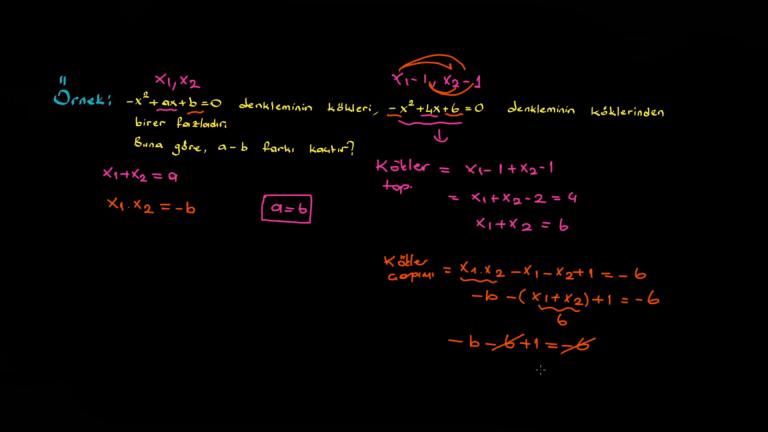 x₁, x₂ x₁-1, x₂-1
Örnek: -x²+ax+b=0 denkleminin kökleri, -x²+4x+6=0 denkleminin köklerinden
birer fazladır.
Buna göre, a-b farkı kaçtır?
x₁+x₂=a
x₁.x₂=-b
a=6
Kökler top. = x₁-1+x₂-1
= x₁+x₂-2=4
x₁+x₂=6
Kökler çarpımı = x₁.x₂-x₁-x₂+1=-6
-b-(x₁+x₂)+1=-6
6
-b-6+1=-6